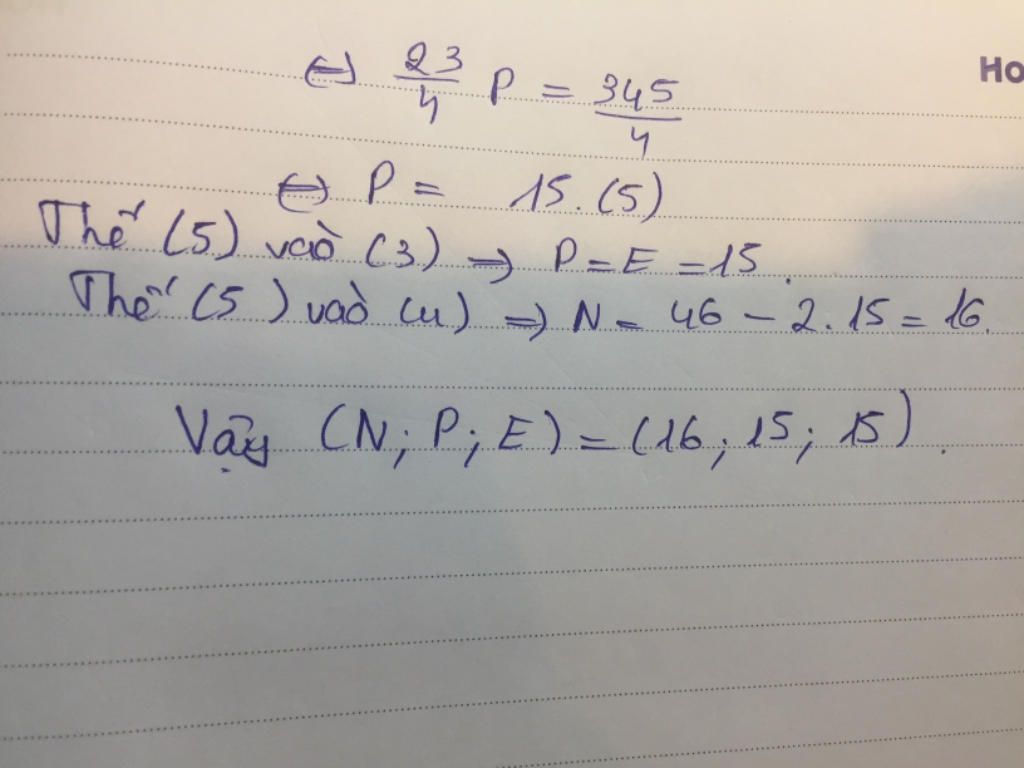 Ho
⇔ 23/4 P = 345/4
⇔ P = 15. (5)
Thế (5) vào (3) ⇒ P = E = 15.
Thế (5) vào (4) ⇒ N = 46 - 2.15 = 16.
Vậy (N; P; E) = (16; 15; 15).